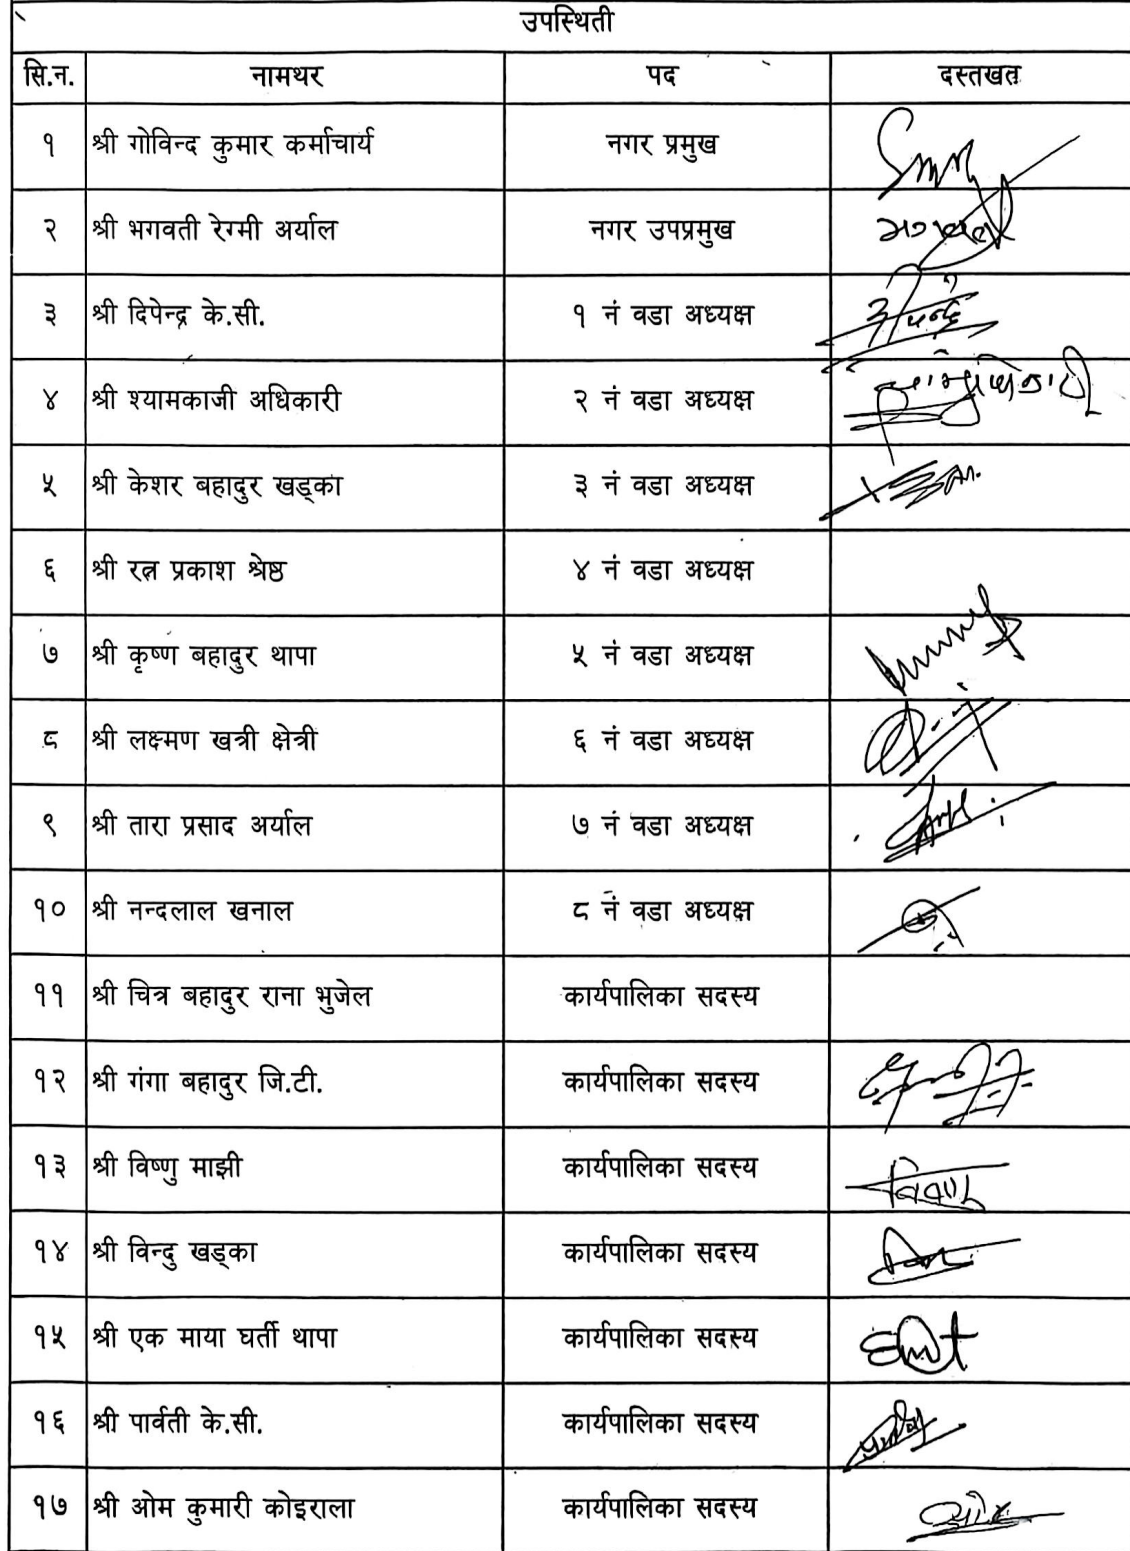 उपस्थिती
सि.न. नामथर पद दस्तखत
१ श्री गोविन्द कुमार कर्माचार्य नगर प्रमुख
२ श्री भगवती रेग्मी अर्याल नगर उपप्रमुख भगवती
३ श्री दिपेन्द्र के.सी. १ नं वडा अध्यक्ष
४ श्री श्यामकाजी अधिकारी २ नं वडा अध्यक्ष
५ श्री केशर बहादुर खड्का ३ नं वडा अध्यक्ष
६ श्री रत्न प्रकाश श्रेष्ठ ४ नं वडा अध्यक्ष
७ श्री कृष्ण बहादुर थापा ५ नं वडा अध्यक्ष
८ श्री लक्ष्मण खत्री क्षेत्री ६ नं वडा अध्यक्ष
९ श्री तारा प्रसाद अर्याल ७ नं वडा अध्यक्ष
१० श्री नन्दलाल खनाल ८ नं वडा अध्यक्ष
११ श्री चित्र बहादुर राना भुजेल कार्यपालिका सदस्य
१२ श्री गंगा बहादुर जि.टी. कार्यपालिका सदस्य
१३ श्री विष्णु माझी कार्यपालिका सदस्य
१४ श्री विन्दु खड्का कार्यपालिका सदस्य
१५ श्री एक माया घर्ती थापा कार्यपालिका सदस्य
१६ श्री पार्वती के.सी. कार्यपालिका सदस्य
१७ श्री ओम कुमारी कोइराला कार्यपालिका सदस्य